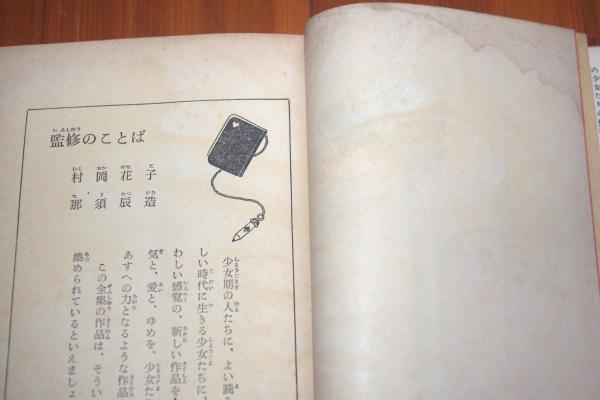 監修のことば
村岡花子
那須辰造
少女期の人たちに、よい読
しい時代に生きる少女たちに、
わしい感覚の、新しい作品を
気と、愛と、ゆめを、少女た
あすへの力となるような作品
この全集の作品は、そうい
集められているといえましょ